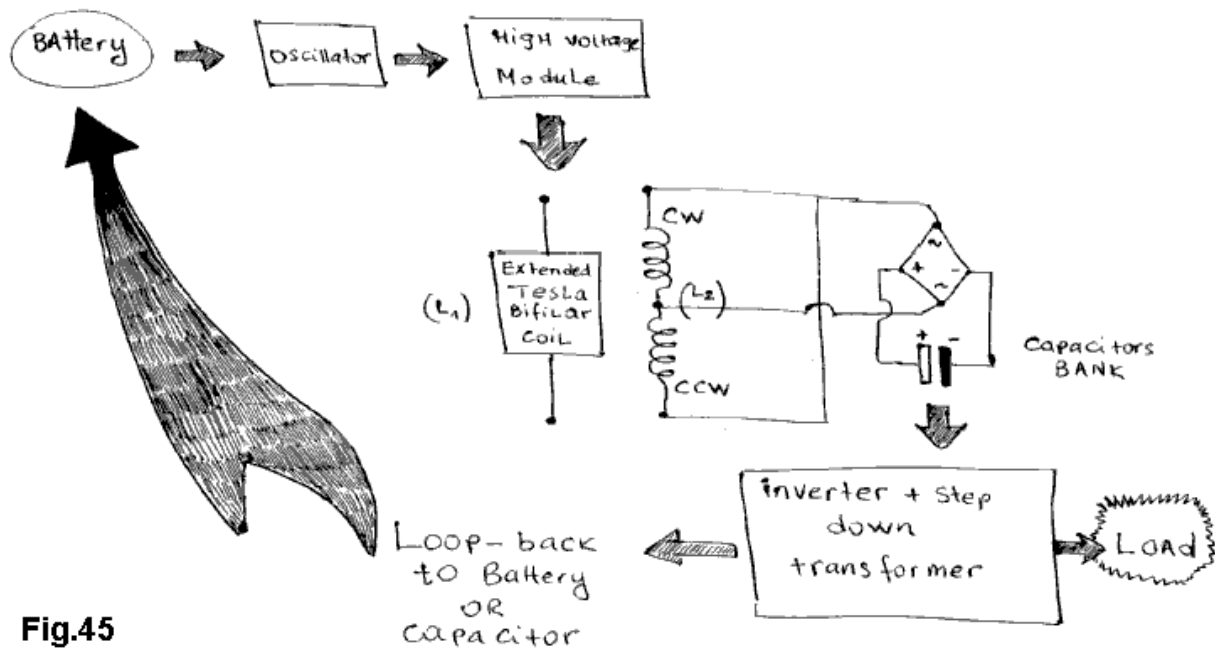 BAttery
Oscillator
HigH voltage
Module
CW
(L1)
Extended
Tesla
Bifilar
COIL
(L2)
CCW
~
+ -
~
+ -
Capacitors
BANK
inverter + step
down
transformer
LOAD
Loop-back
to Battery
OR
Capacitor
Fig.45